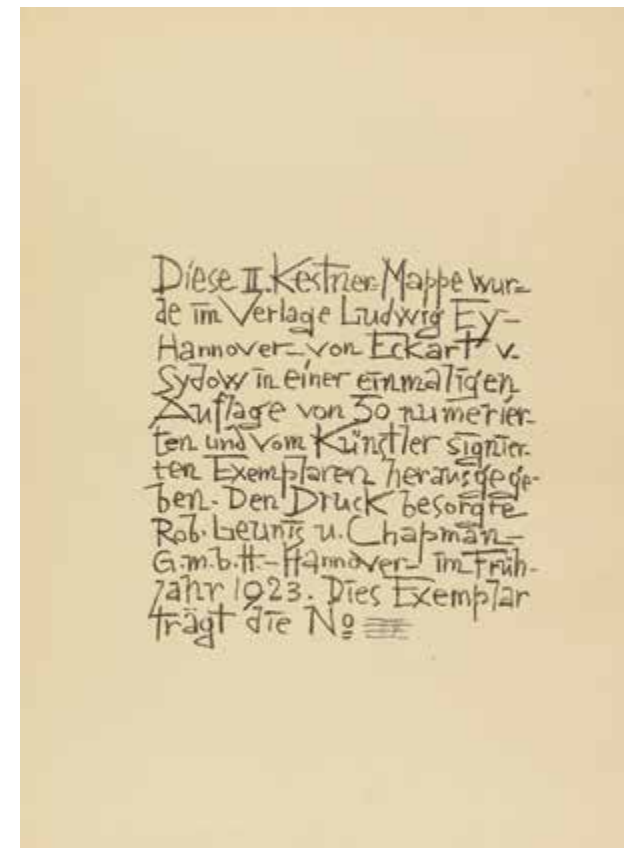 Diese II. Kestner-Mappe wur-
de im Verlage Ludwig Ey-
Hannover-von Eckart v.
Sydow in einer einmaligen
Auflage von 50 numerier-
ten und vom Künstler signier-
ten Exemplaren herausgege-
ben. Den Druck besorgte
Rob. Leunis u. Chapman-
G.m.b.H.-Hannover-im Früh-
jahr 1923. Dies Exemplar
trägt die Nº